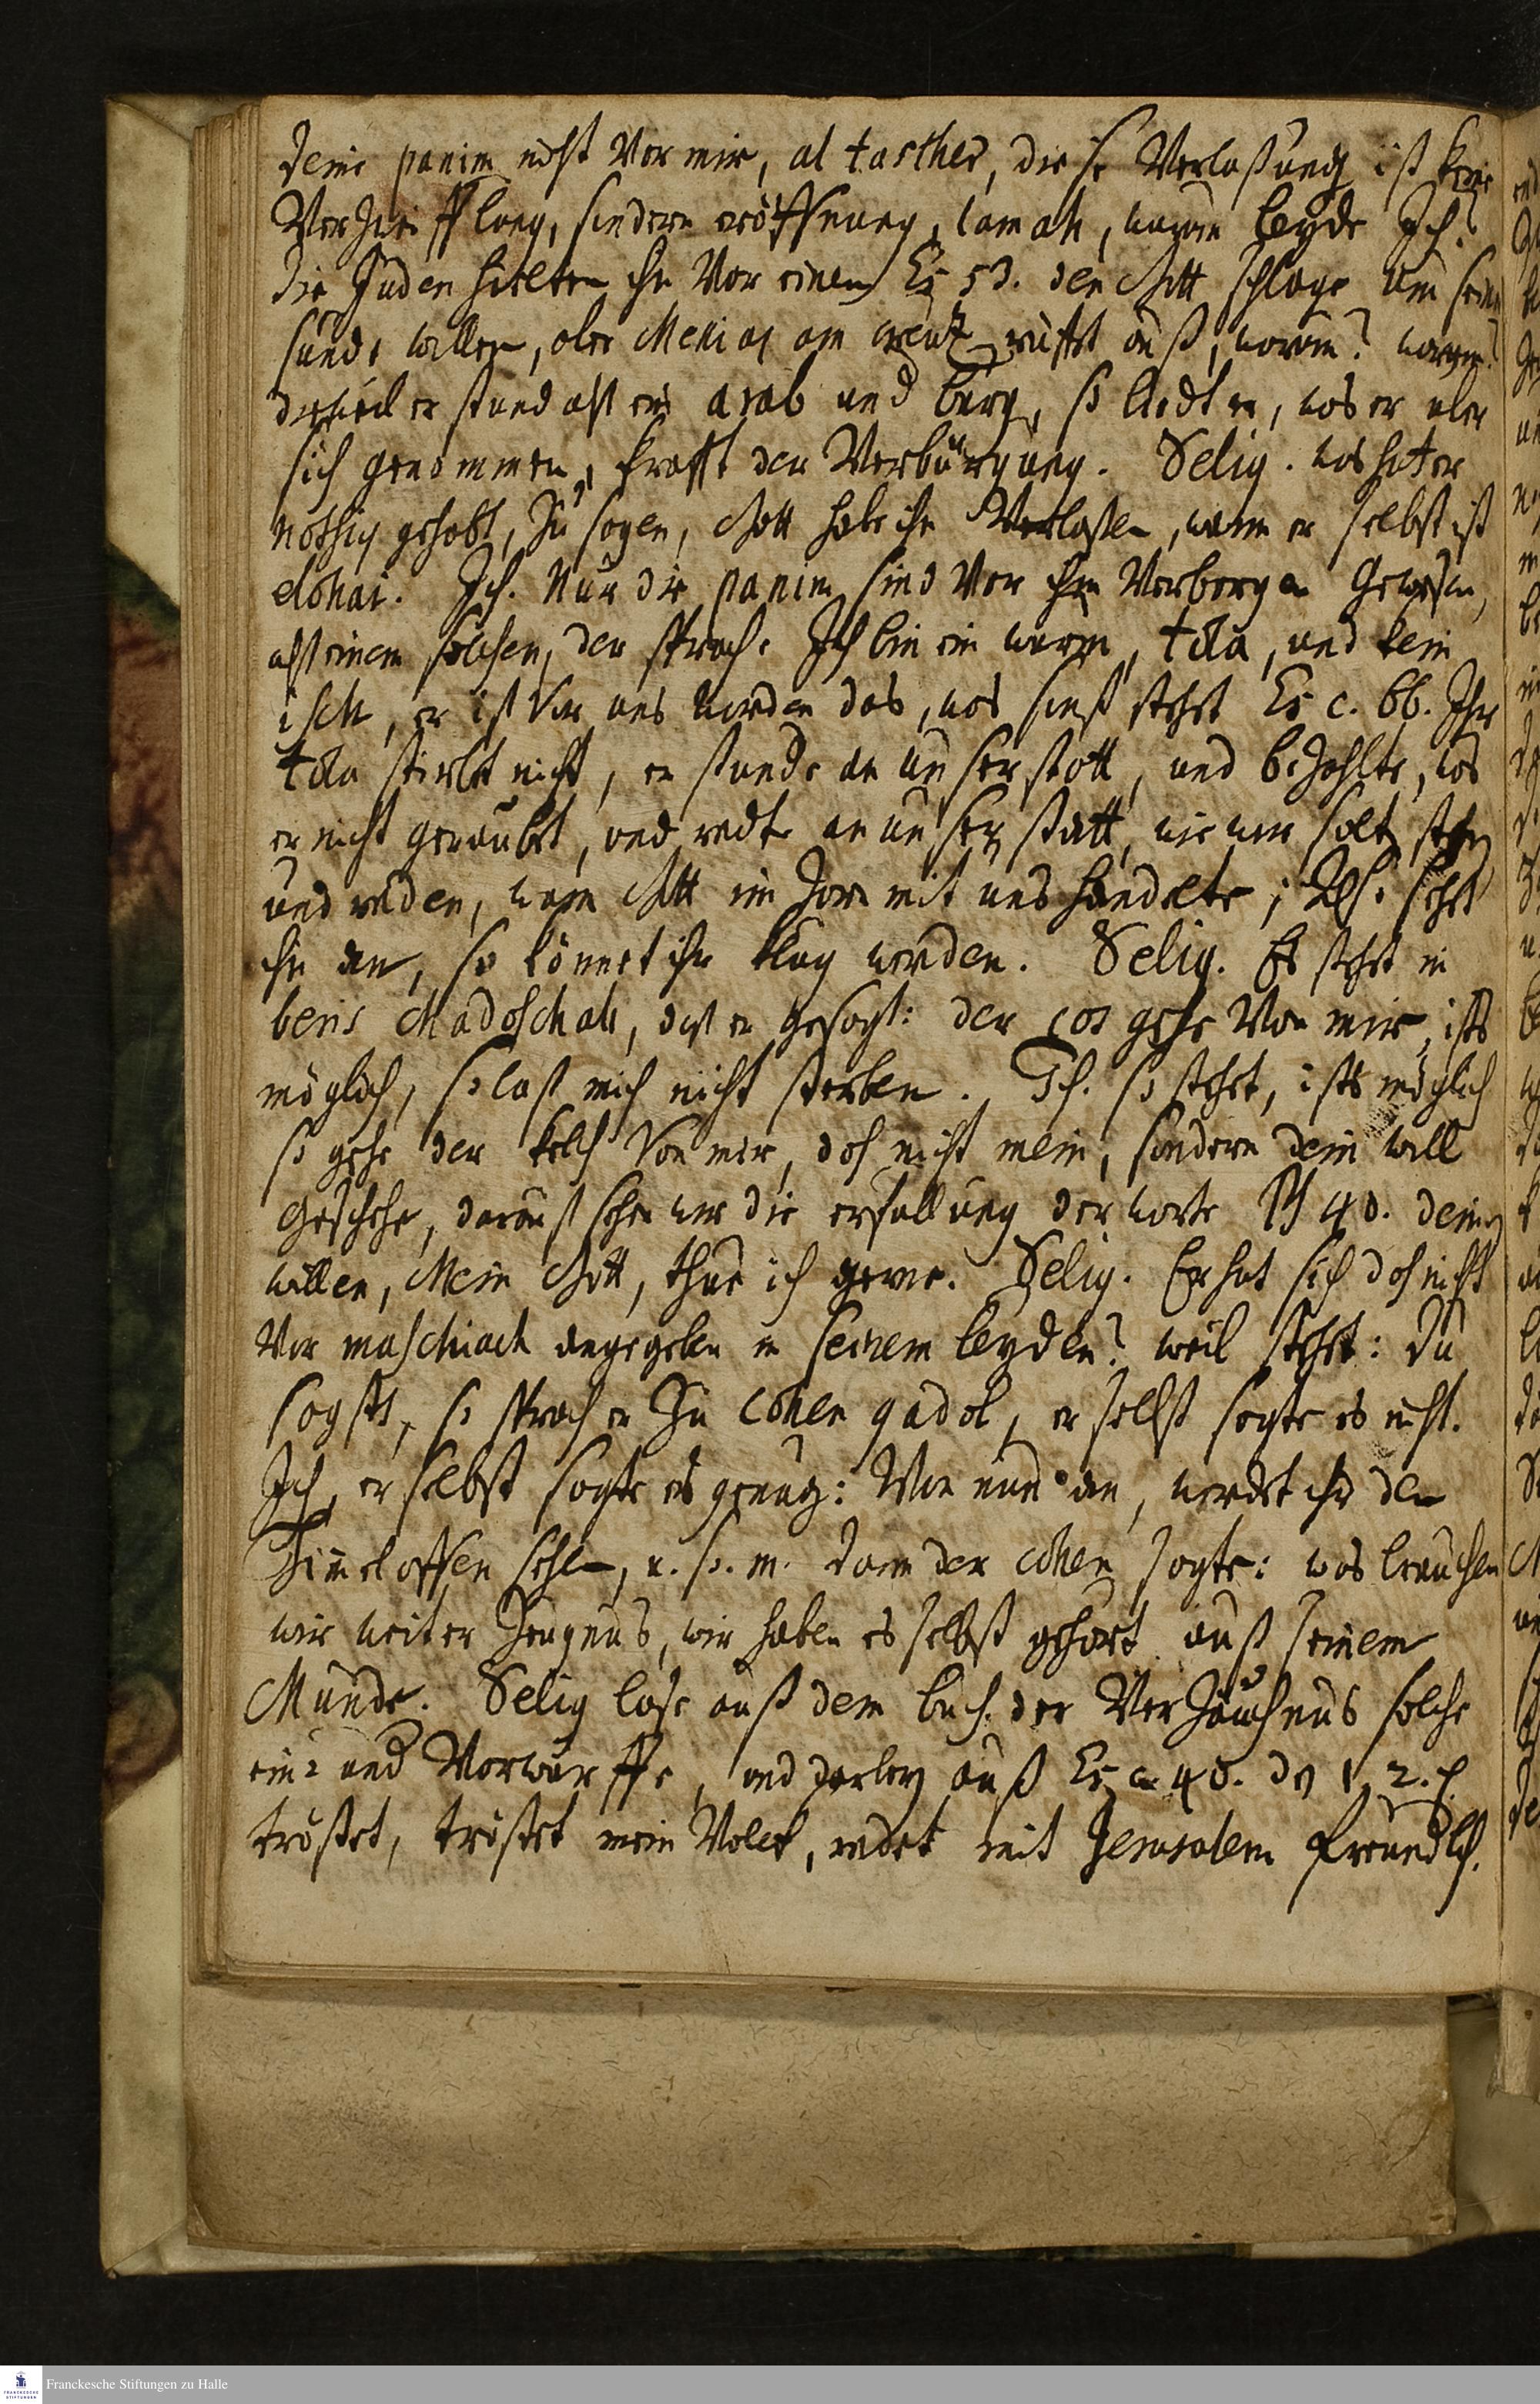 deine panim nicht Vor mir, al tasther, diese Verlaßung ist keine
Verzweifflung, sondern eröffnung, lamah, warum leyde Ich?
die Juden hielten ihn Vor einen Es 53. den Gott schlage um seiner
sünde willen, aber Messias am creutz rufft auß, warum? warum?
dieweil er stund alß ein arab und bürg, so liedt er, was er uber
sich genommen, krafft der Verbürgung. Selig. was hat er
nöthig gehabt, zu sagen, Gott habe ihn Verlaßen, wann er selbst ist
elohai. Ich. Nur die panim sind Vor ihm Verborgen gewesen,
alß einem solchen, der sprach: Ich bin ein wurm, tola, und kein
isch, er ist Vor uns worden das, was sonst stehet Es c. 66. Ihr
tola stirbet nicht, er stunde an unser statt, und bezahlte, was
er nicht geraubet, und redte an unser statt, wie wir solten stehen
und reden, wann Gott im zorn mit uns handelte; sehet
ihn an, so könnet ihr klug werden. Selig. Es stehet in
beris Chadoschah, daß er gesagt: der cos gehe Von mir, ists
möglich, so laß mich nicht sterben. Ich. so stehet, ists möglich
so gehe der kelch Von mir, doch nicht mein, sondern dein will
geschehe, darauß sehen wir die erfullung der worte Ps 40. deinen
willen, Mein Gott, thue ich gerne. Selig. Er hat sich doch nicht
Vor maschiach angegeben in seinem leyden? weil stehet: du
sagsts, so sprach er zu cohen gadol, er selbst sagte es nicht.
Ich, er selbst sagte es genug: Von nun an, werdet ihr den
Himel offen sehen, u. s. m. dann der cohen sagte: was brauchen
wir weiter zeugnus, wir haben es selbst gehört auß seinem
Munde. Selig lase auß dem buch der Verzäuchnus solche
ein- und Vorwürffe, und Es c. 40. 1, 2.
tröstet, tröstet mein Volck, redet mit Jerusalem freundlich.
Franckesche Stiftungen zu Halle